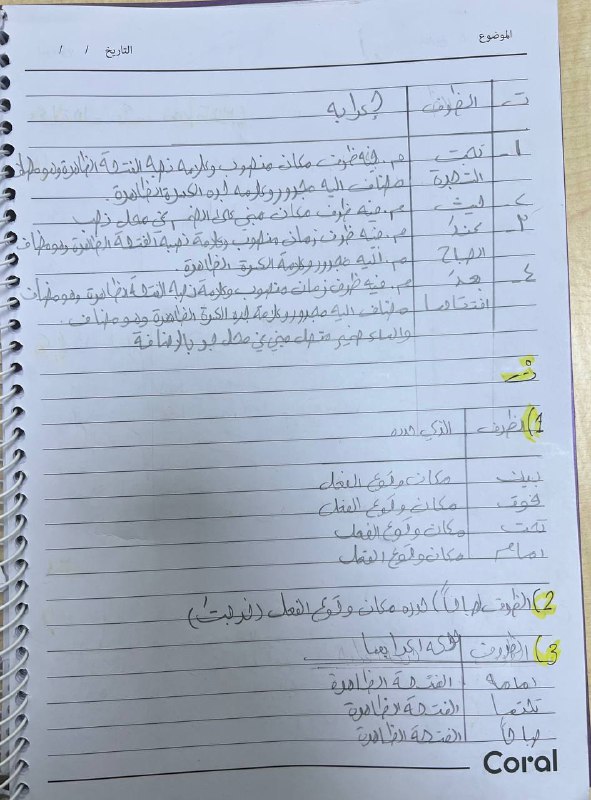 الموضوع
التاريخ / /
ت الظرف إعرابه
1- تحت م. فيه ظرف مكان منصوب وعلامة نصبه الفتحة الظاهرة وهو مضاف
الشجرة مضاف اليه مجرور وعلامة جره الكسرة الظاهرة.
2- حيث م. فيه ظرف مكان مبني على الضم في محل نصب
3- عند م. فيه ظرف زمان منصوب وعلامة نصبه الفتحة الظاهرة وهو مضاف
الصباح م. اليه مجرور وعلامة الكسرة الظاهرة.
4- بعد م. فيه ظرف زمان منصوب وعلامة نصبه الفتحة الظاهرة وهو مضاف
مضاف اليه مجرور وعلامة جره الكسرة الظاهرة وهو مضاف
والهاء ضمير متصل مبني في محل جر بالإضافة
1) الظرف الذي حدده
بين مكان وقوع الفعل
فوق مكان وقوع الفعل
تحت مكان وقوع الفعل
أمام مكان وقوع الفعل
2) الظرف (صباحاً) حدده مكان وقوع الفعل (خرجت)
3) الظروف حركة اعرابها
أمامه الفتحة الظاهرة
تحتها الفتحة الظاهرة
صباحاً الفتحة الظاهرة
Coral